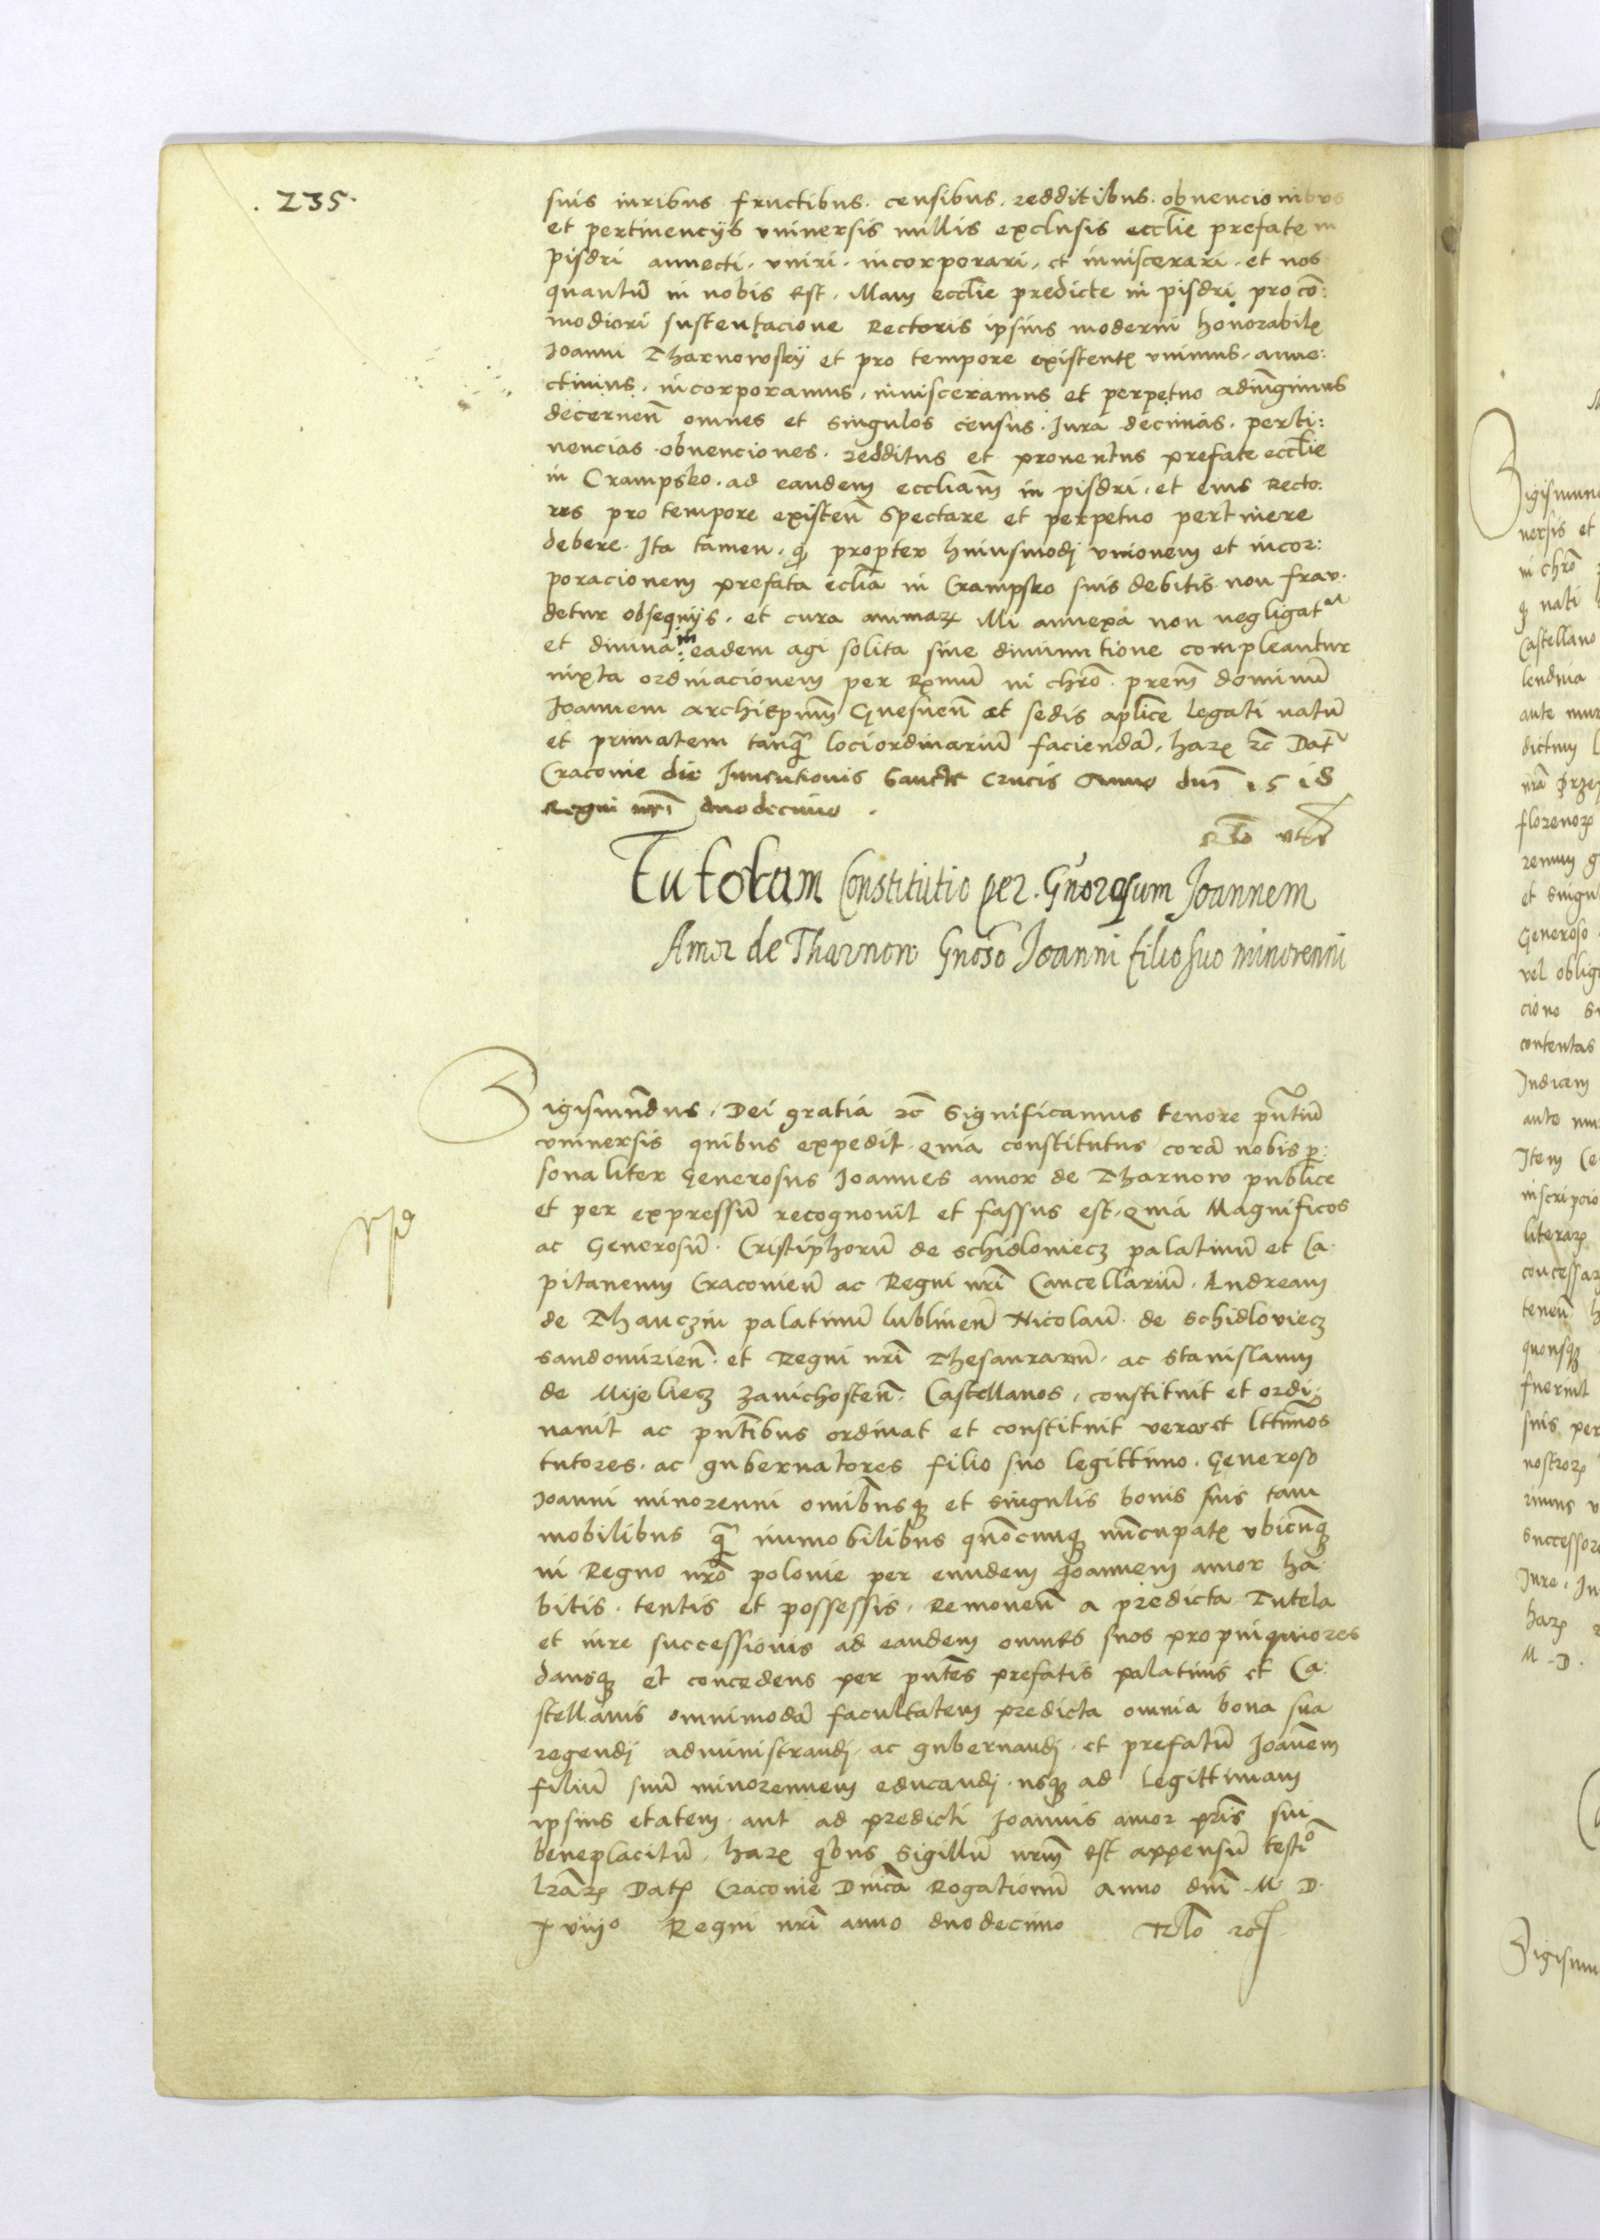 .235.
suis iuribus fructibus. censibus. redditibus. obvencionibus
et pertinencijs vniuersis nullis exclusis ecclīe prefate in
pisdri annecti. vniri. incorporari, et inniscerari. et nos
quantū in nobis est. illam ecclīe predicte in pisdri pro cō:
modiori sustentacione Rectoris ipsius moderni honorabilꝭ
Joanni Tharnowskÿ et pro tempore existentꝭ vnimus. anne:
ctimus. incorporamus, inniscerámus et perpetuo adiūgimus
decerneñ omnes et singulos census. Jura decimas. perti:
nencias obuenciones. redditus et prouentus prefate ecclīe
in Crampsko. ad eandem eccliam̄ in pisdri. et eius Recto:
res pro tempore existeñ spectare et perpetuo pertinere
debere. Ita tamen. ꝙ propter huiusmodj vnionem et incor:
poracionem prefata eclīa in Crampsko suis debitis non frau:
detur obsequijs. et cura animaꝝ illi annexa non negligatur
et diuina in eadem agi solita sine diminutione compleantur
iuxta ordinacionem per Rx̄mū in chrō prem̄ dominū
Joannem archiepūm Gnesneñ et sedis aplīce legati natū
et primatem tanꝗ̄ loci ordinariū faciendā. harꝝ ꝛc̄ Dat̄
Cracouie die Inuentionis Sancte Crucis Anno dn̄i 1518
Regni nrī duodecimo.
Rlō vt s̄
Tutorum Constitutio per. Gnorosum Joannem
Amor de Tharnow Gnōso Joanni filio suo minorenni
Sigismūdus. Dei gratia ꝛc̄ Significamus tenore pn̄tiū
vniuersis quibus expedit. Quia constitutus corā nobis per:
sonaliter Generosus Joannes amor de Tharnow publice
et per expressū recognouit et fassus est. Quia Magnificos
ac Generosū. Cristiphorū de schidloniecz palatinū et Ca:
pitaneum Cracouieñ ac Regni nrī Cancellariū. Andream
de Thanczin palatinū lublineñ Nicolaū. de schidloviecz
sandomirieñ. et Regni nrī Thesaurariū. ac Stanislaum
de Mijeliecz Zauichosteñ. Castellanos. constituit et ordi:
nauit ac pn̄tibus ordinat et constituit veros et lttīmos
tutores. ac gubernatores filio suo legittimo. Generoso
Joanni minorenni omibusꝗ et singulis bonis suis tam
mobilibus ꝗ̄ inmobilibus quōcumꝗ nūcupatꝭ vbicūꝗ
in Regno nrō polonie per eundem Joannem amor ha:
bitis. tentis et possessis. Remoueñ a predicta Tutela
et iure successionis ad eandem omnes suos propinquiores
dansꝗ et concedens per pn̄tes prefatis palatinis et Ca:
stellanis omnimodā facultatem predicta omnia bona sua
regendj administrandj. ac gubernandj. et prefatū Joānem
filiū suū minorennem educandj. usꝗ ad legittimam
ipsius etatem. aut ad predicti Joannis amor prīs sui
beneplacitū. harꝝ ꝗbus Sigillū nrm̄ est appensū testiō
lrāꝝ Datꝭ Cracouie Dn̄ica Rogationū Anno dn̄i M. D.
xviijº Regni nrī anno duodecimo Rlō ꝛc